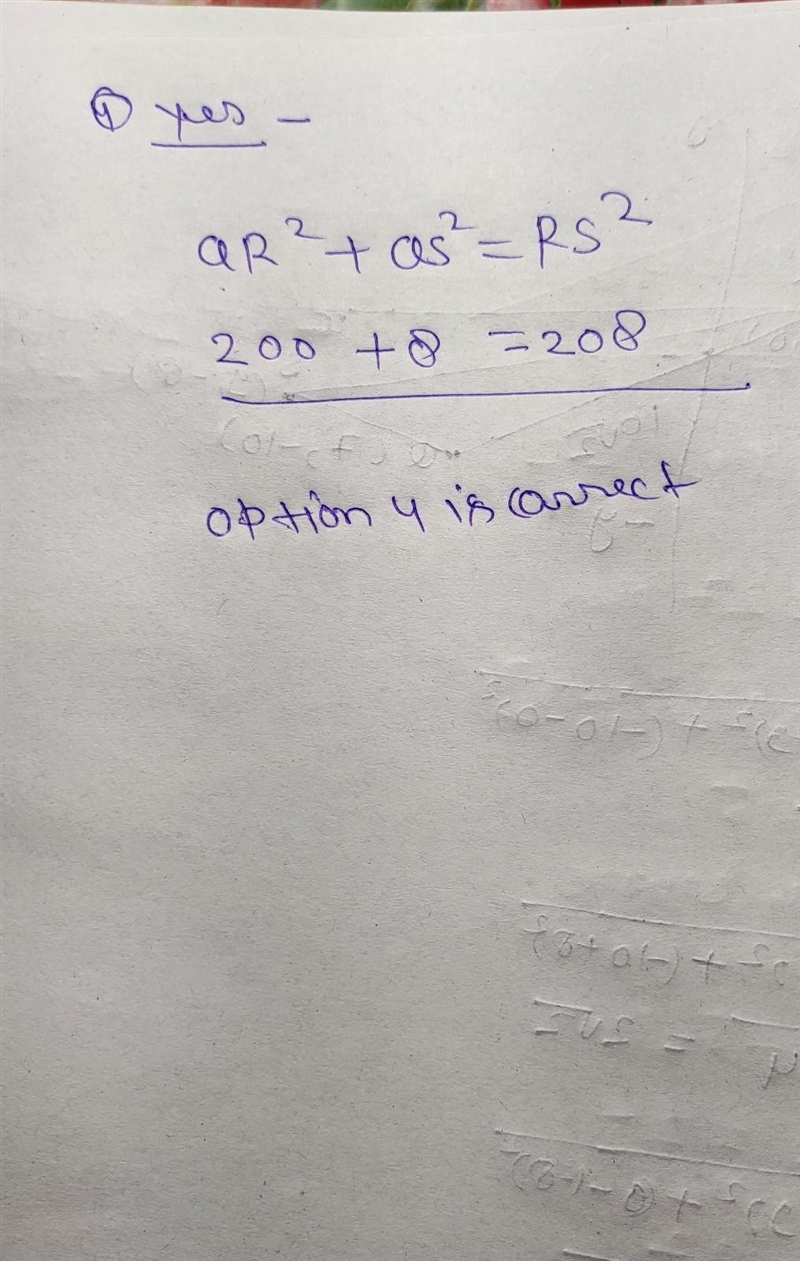 ① yes -
QR² + QS² = RS²
200 + 8 = 208
option 4 is correct